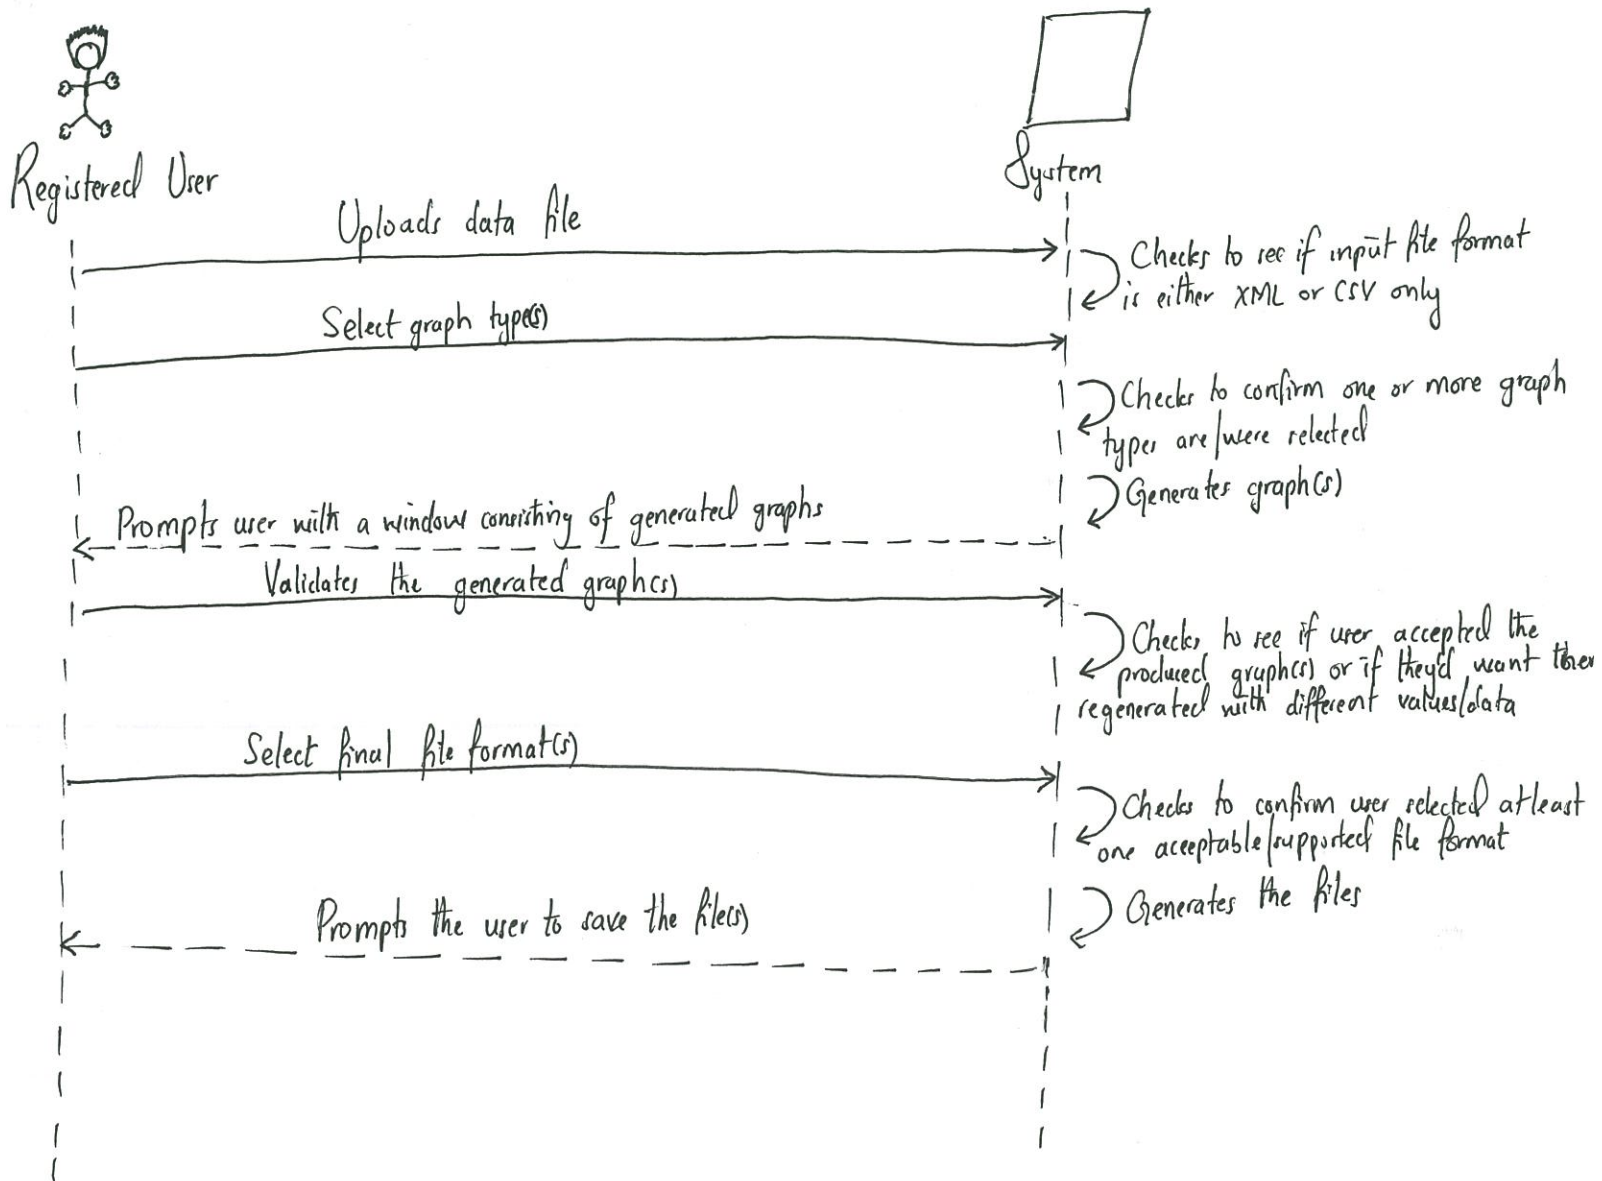 Registered User
System
Uploads data file
Checks to see if input file format
is either XML or CSV only
Select graph type(s)
Checks to confirm one or more graph
types are/were selected
Generates graph(s)
Prompts user with a window consisting of generated graphs
Validates the generated graph(s)
Checks to see if user accepted the
produced graph(s) or if they'd want
regenerated with different values/data
Select final file format(s)
Checks to confirm user selected atleast
one acceptable/supported file format
Generates the files
Prompts the user to save the file(s)